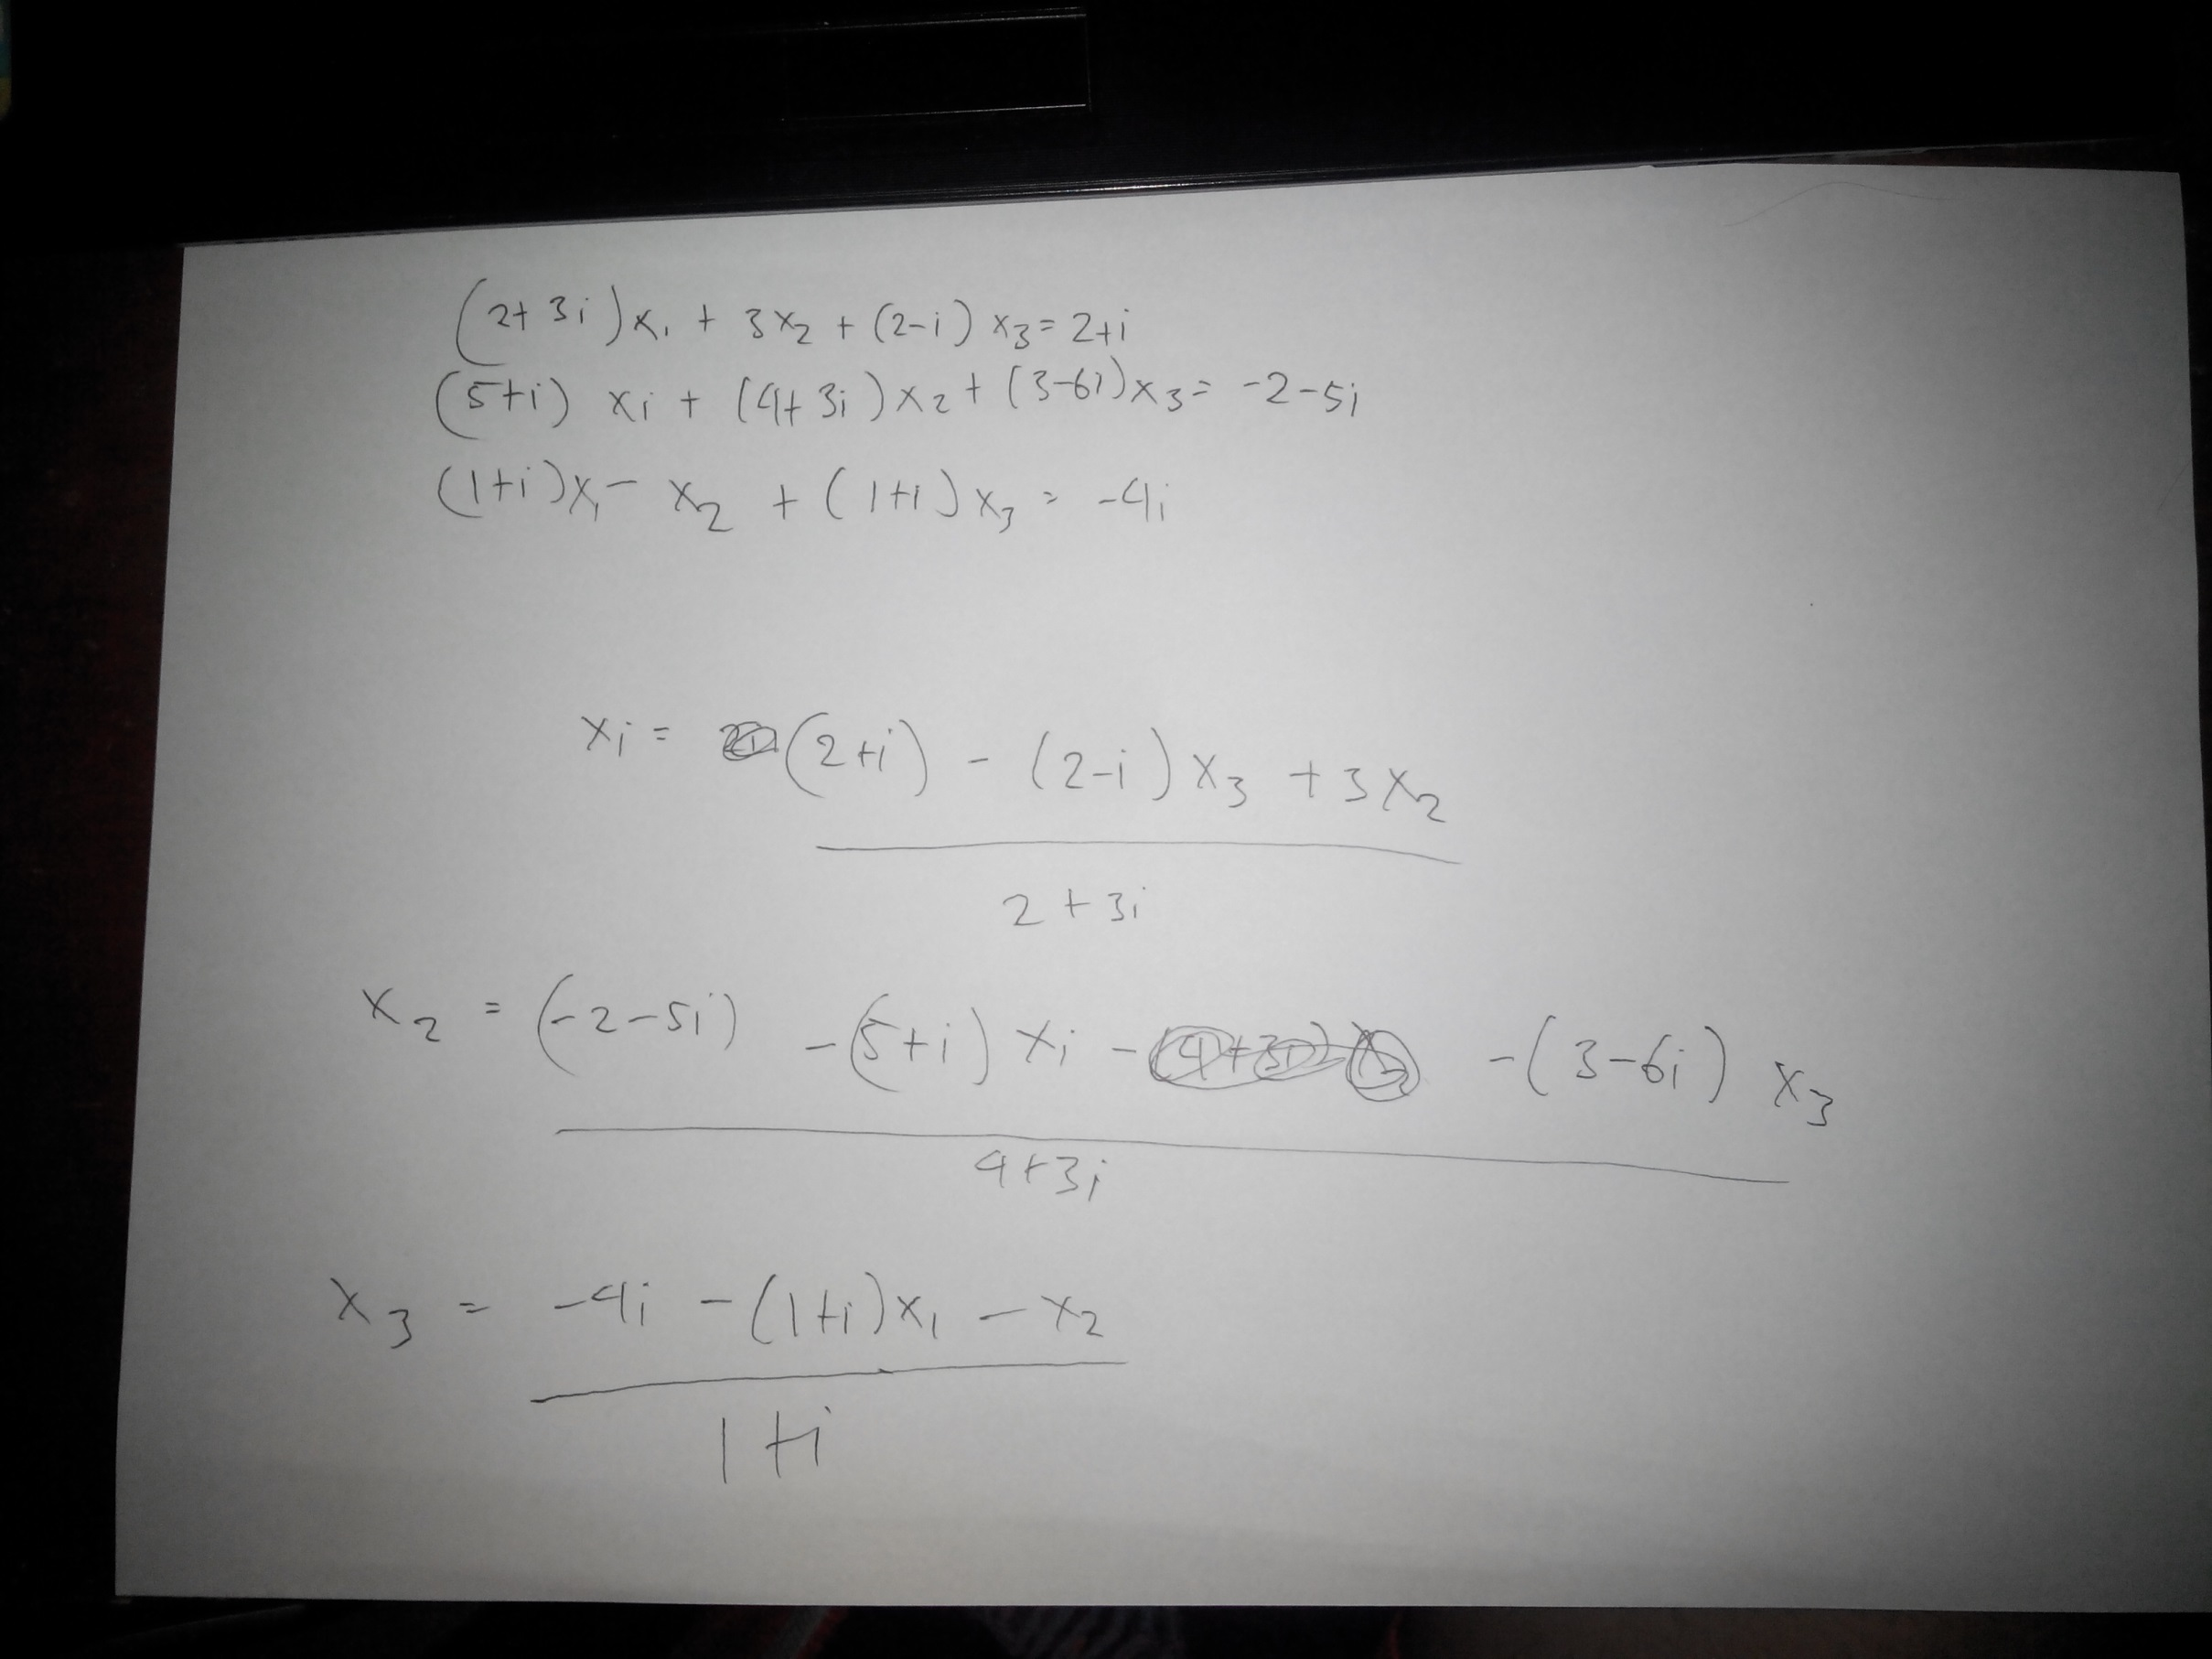 (2+3i)x₁ + 3x₂ + (2-i) x₃ = 2+i
(5+i) xi + (4+3i)x₂ + (3-6i)x₃ = -2-5i
(1+i)x₁ - x₂ + (1+i)x₃ = -4i
xi = (2+i) - (2-i)x₃ + 3x₂
2+3i
x₂ = (-2-5i) -(5+i) xi - -(3-6i) x₃
4+3i
x₃ = -4i -(1+i)x₁ - x₂
1+i